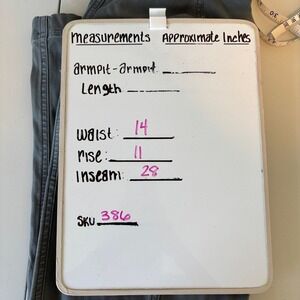 measurements Approximate Inches
armpit-armpit
Length
waist: 14
rise: 11
Inseam: 28
SKU 386
30